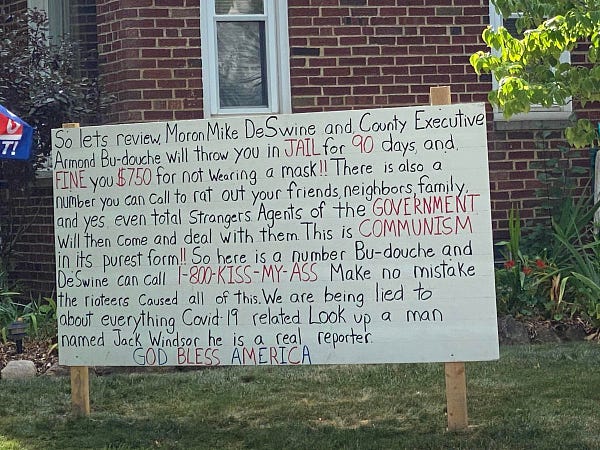 So lets review. Moron Mike DeSwine and County Executive
Armond Bu-douche will throw you in JAIL for 90 days, and,
FINE you $750 for not wearing a mask!! There is also a
number you can call to rat out your friends, neighbors, family,
and yes, even total Strangers. Agents of the GOVERNMENT
Will then Come and deal with them. This is COMMUNISM
in its purest form!! So here is a number Bu-douche and
DeSwine can call 1-800-KISS-MY-ASS Make no mistake
the rioteers Caused all of this. We are being lied to
about everything Covid-19 related Look up a man
named Jack Windsor he is a real reporter.
GOD BLESS AMERICA